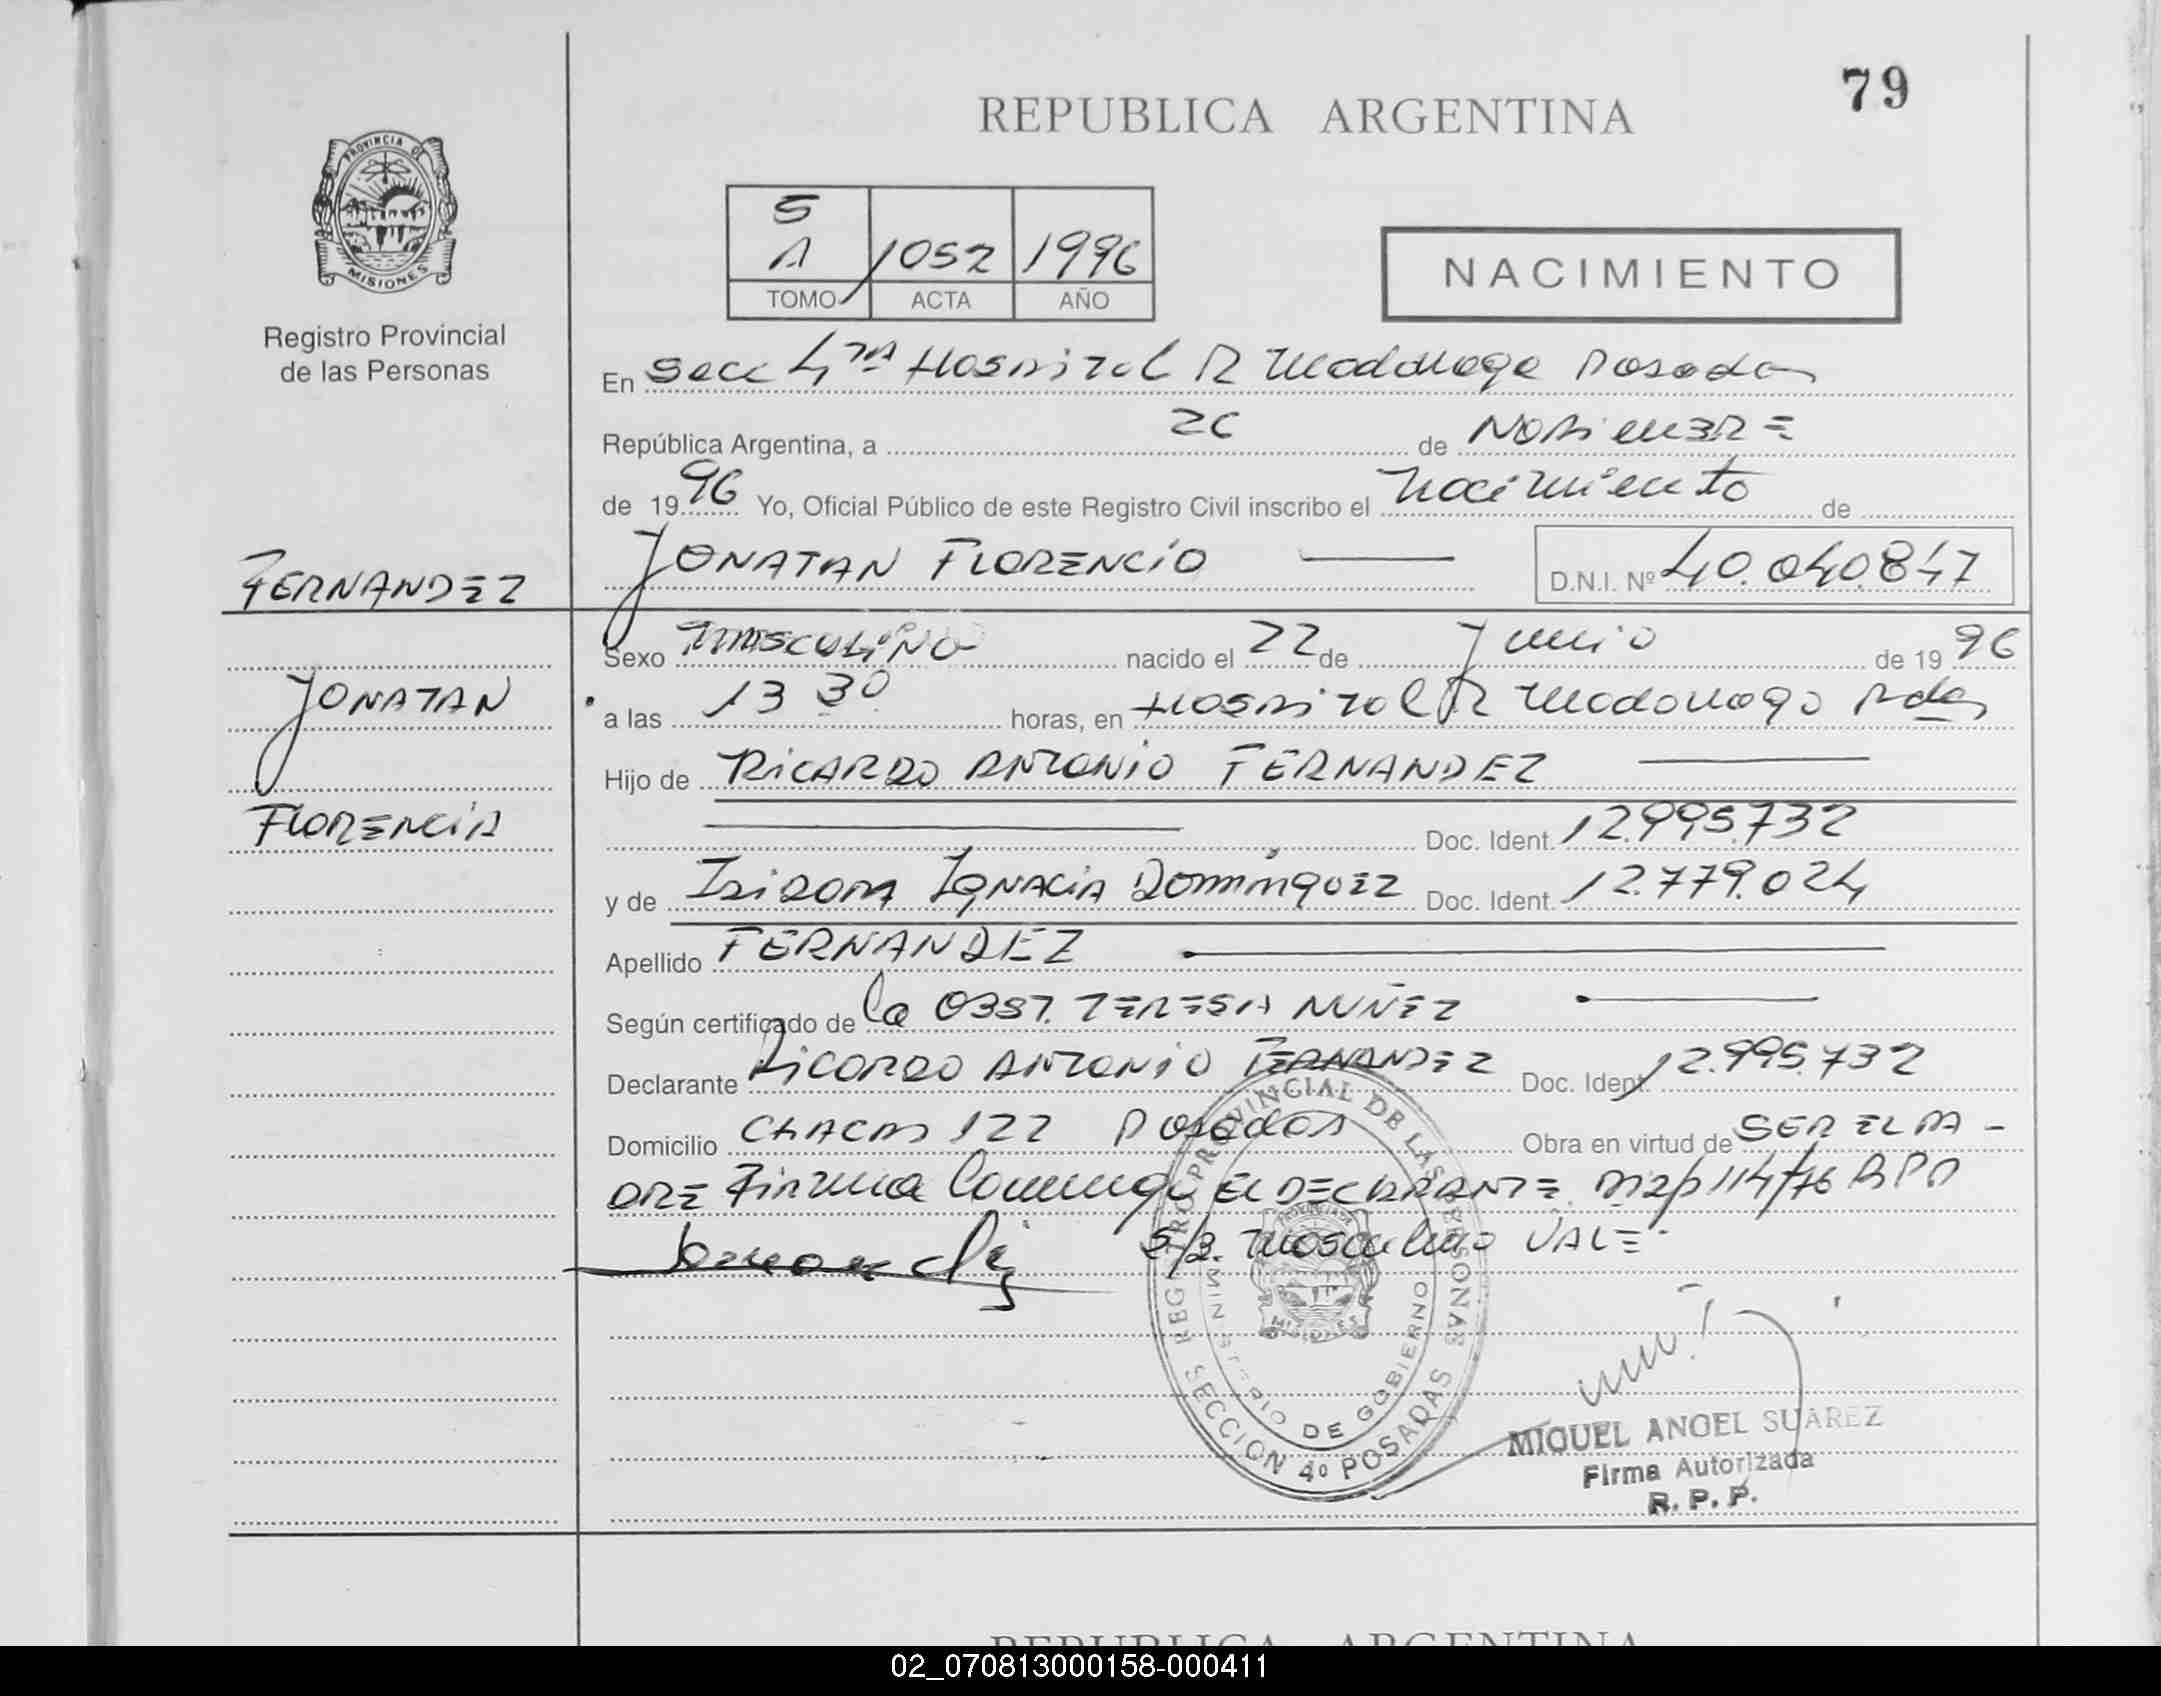 79
REPUBLICA ARGENTINA
PROVINCIA DE
MISIONES
Registro Provincial
de las Personas
5
A 1052 1996
TOMO ACTA AÑO
NACIMIENTO
En Secc 4ta Hospital R Madariaga Posadas
República Argentina, a 26 de NOViEMBRE
de 1996 Yo, Oficial Público de este Registro Civil inscribo el Nacimiento de
JONATAN FLORENCIO D.N.I. Nº 40.040.847
FERNANDEZ
Sexo MASCULiNO nacido el 22 de Junio de 1996
JONATAN
a las 13 30 horas, en Hospital R Madariaga Pdas
Hijo de RiCARDO ANTONiO FERNANDEZ
FLORENCiA
Doc. Ident. 12.995.732
y de ISiDORA IGNACiA DOMINGUEZ Doc. Ident. 12.779.024
Apellido FERNANDEZ
Según certificado de la OBST. TERESA NUÑEZ
Declarante RiCARDO ANTONiO FERNANDEZ Doc. Ident. 12.995.732
Domicilio CHACAS 122 Posadas Obra en virtud de SER EL PA-
DRE Firma Conmigo El DECLARANTE. Disp 114/76 RPP
S/R. Masculino VALE
REGISTRO PROVINCIAL DE LAS PERSONAS
MINISTERIO DE GOBIERNO
MISIONES
SECCION 4º POSADAS
MIGUEL ANGEL SUAREZ
Firma Autorizada
R. P. P.
REPUBLICA ARGENTINA
02_070813000158-000411